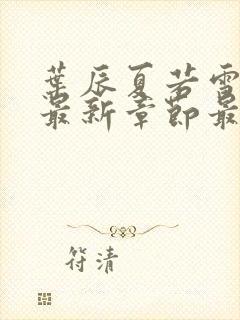 葉辰夏若雪
最新章節最
符清